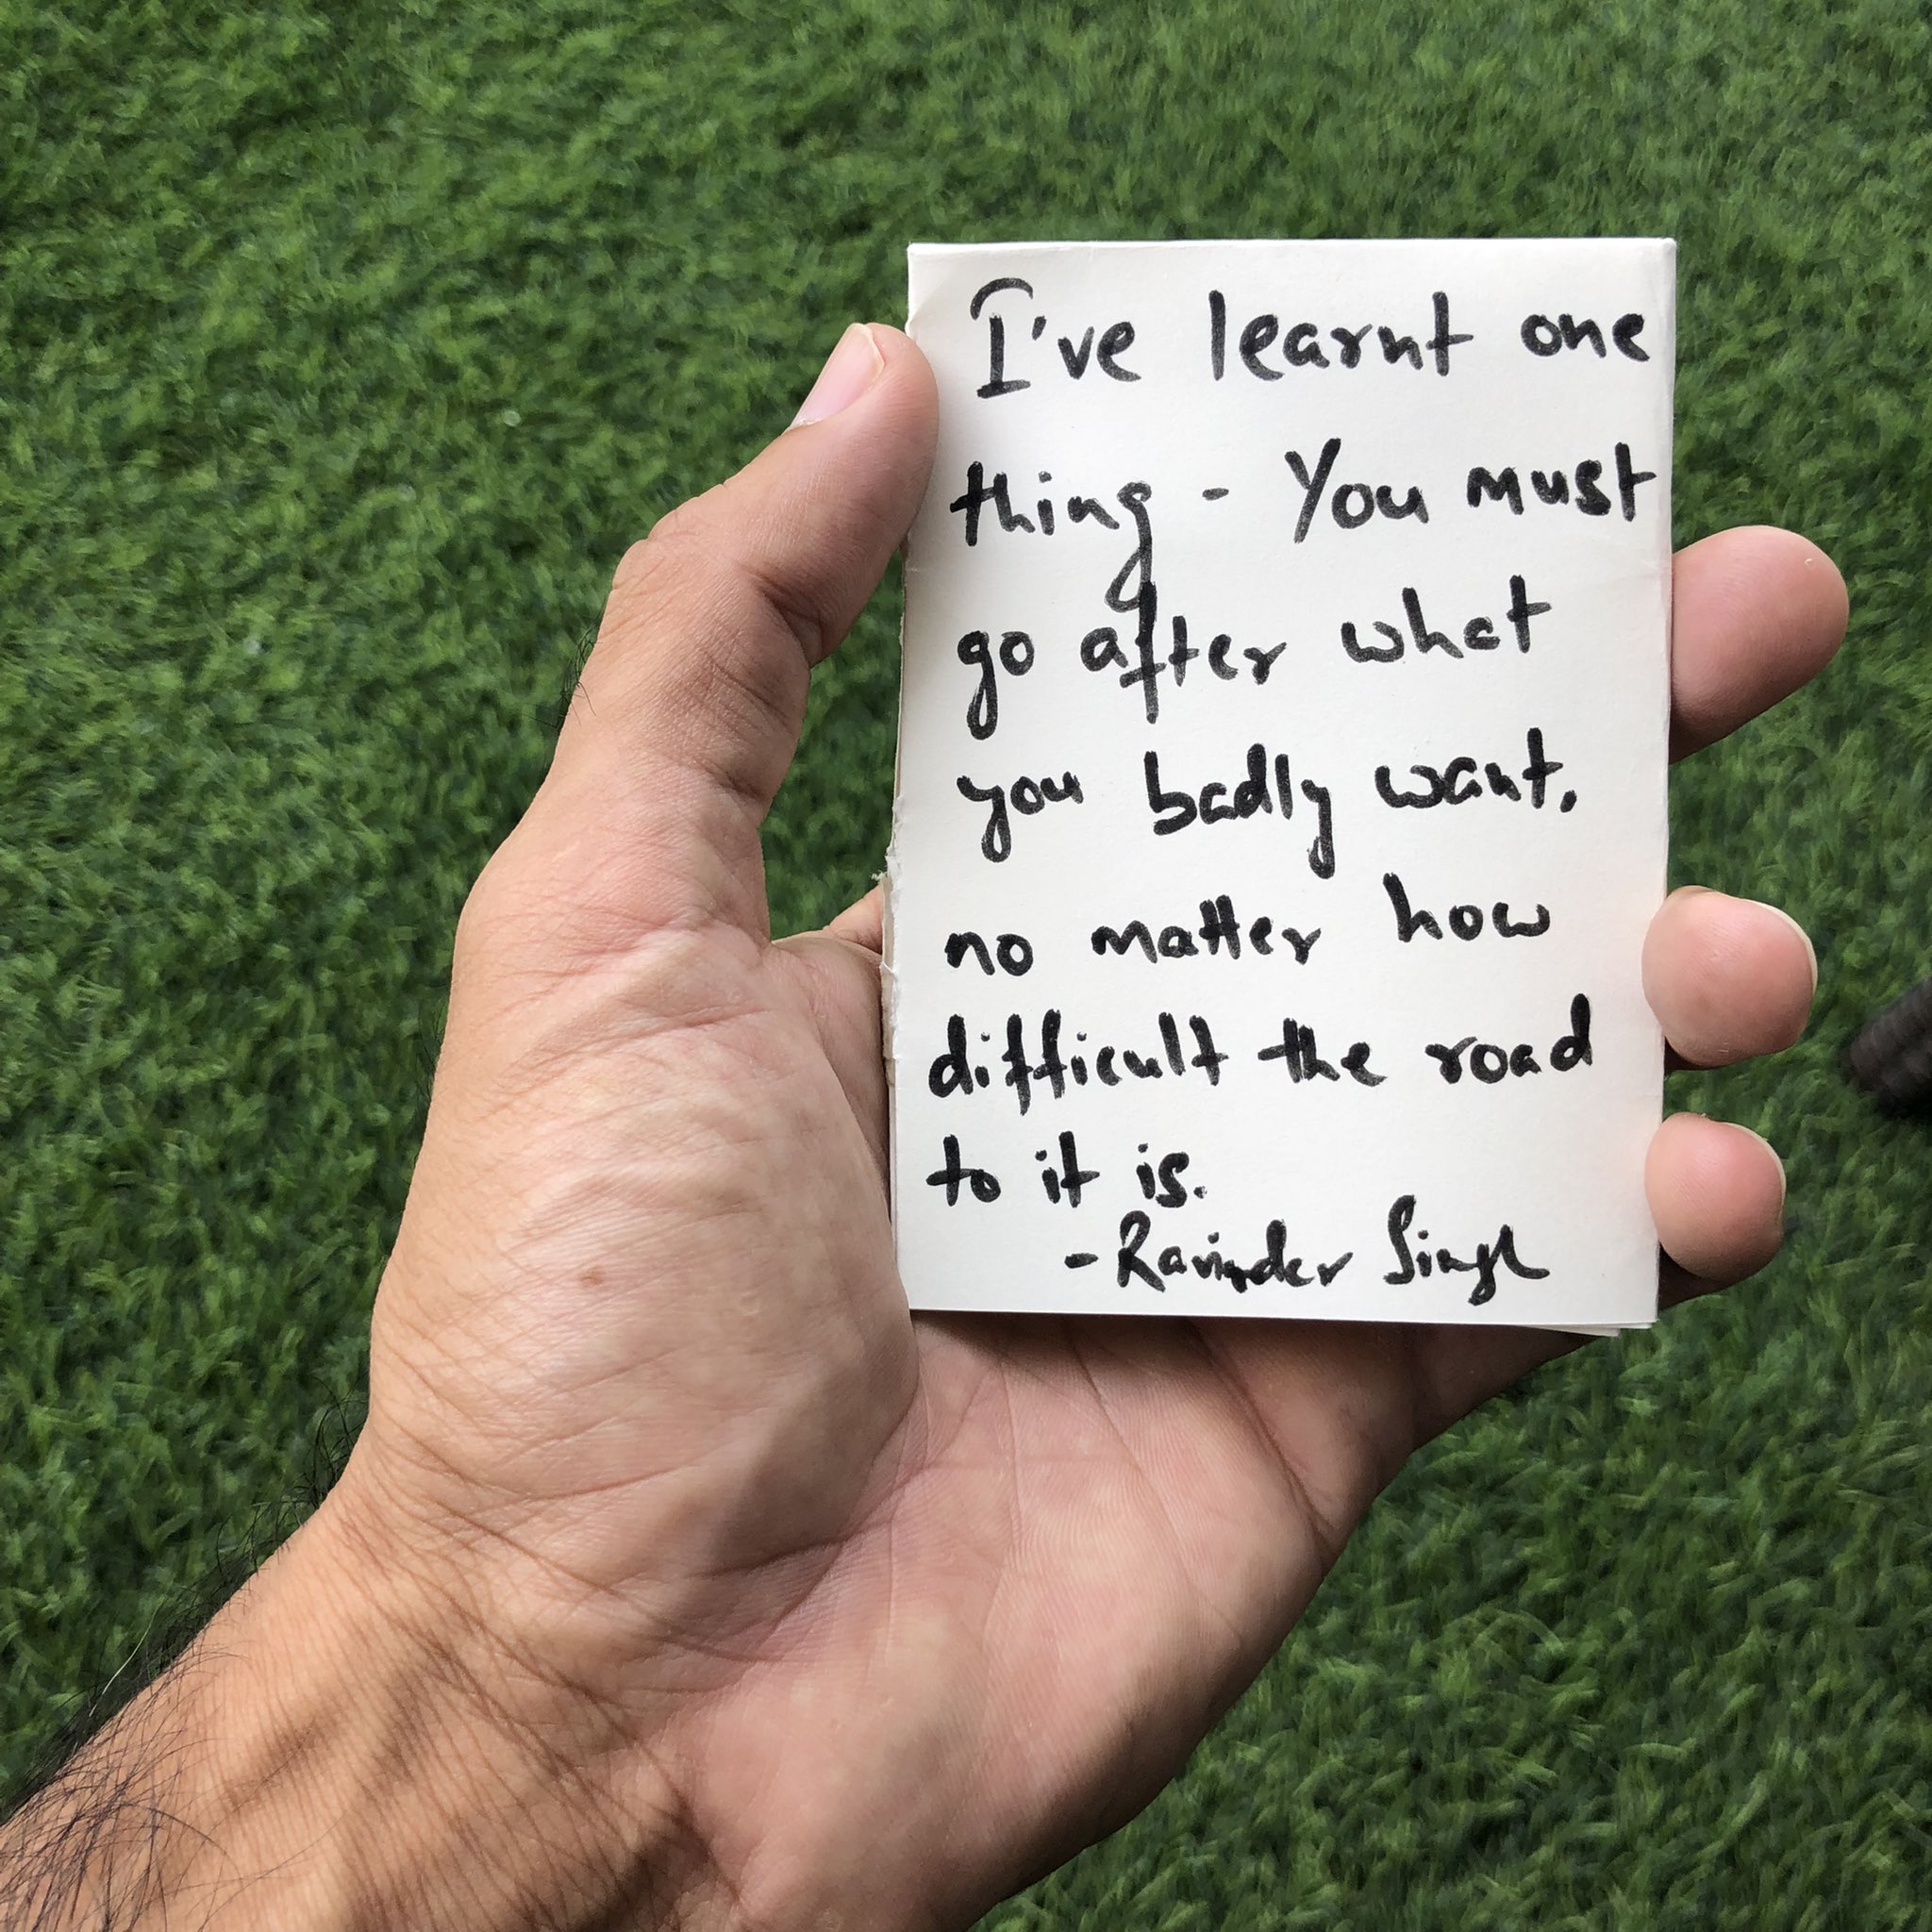 I've learnt one
thing - You must
go after what
you badly want,
no matter how
difficult the road
to it is.
- Ravinder Singh